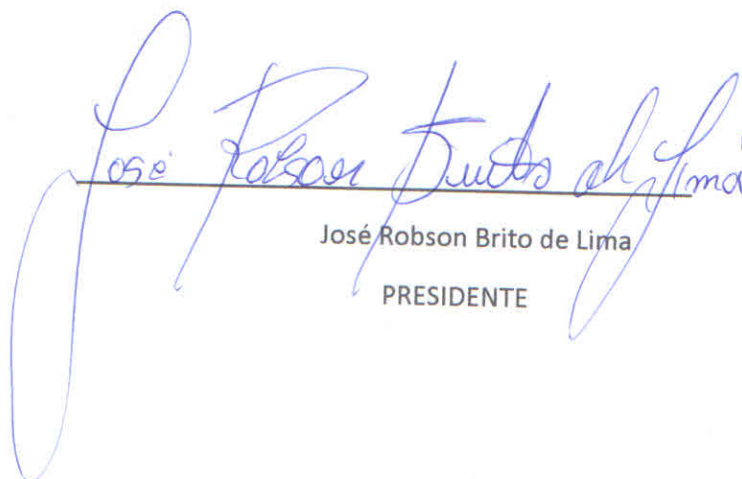 José Robson Brito de Lima
José Robson Brito de Lima
PRESIDENTE